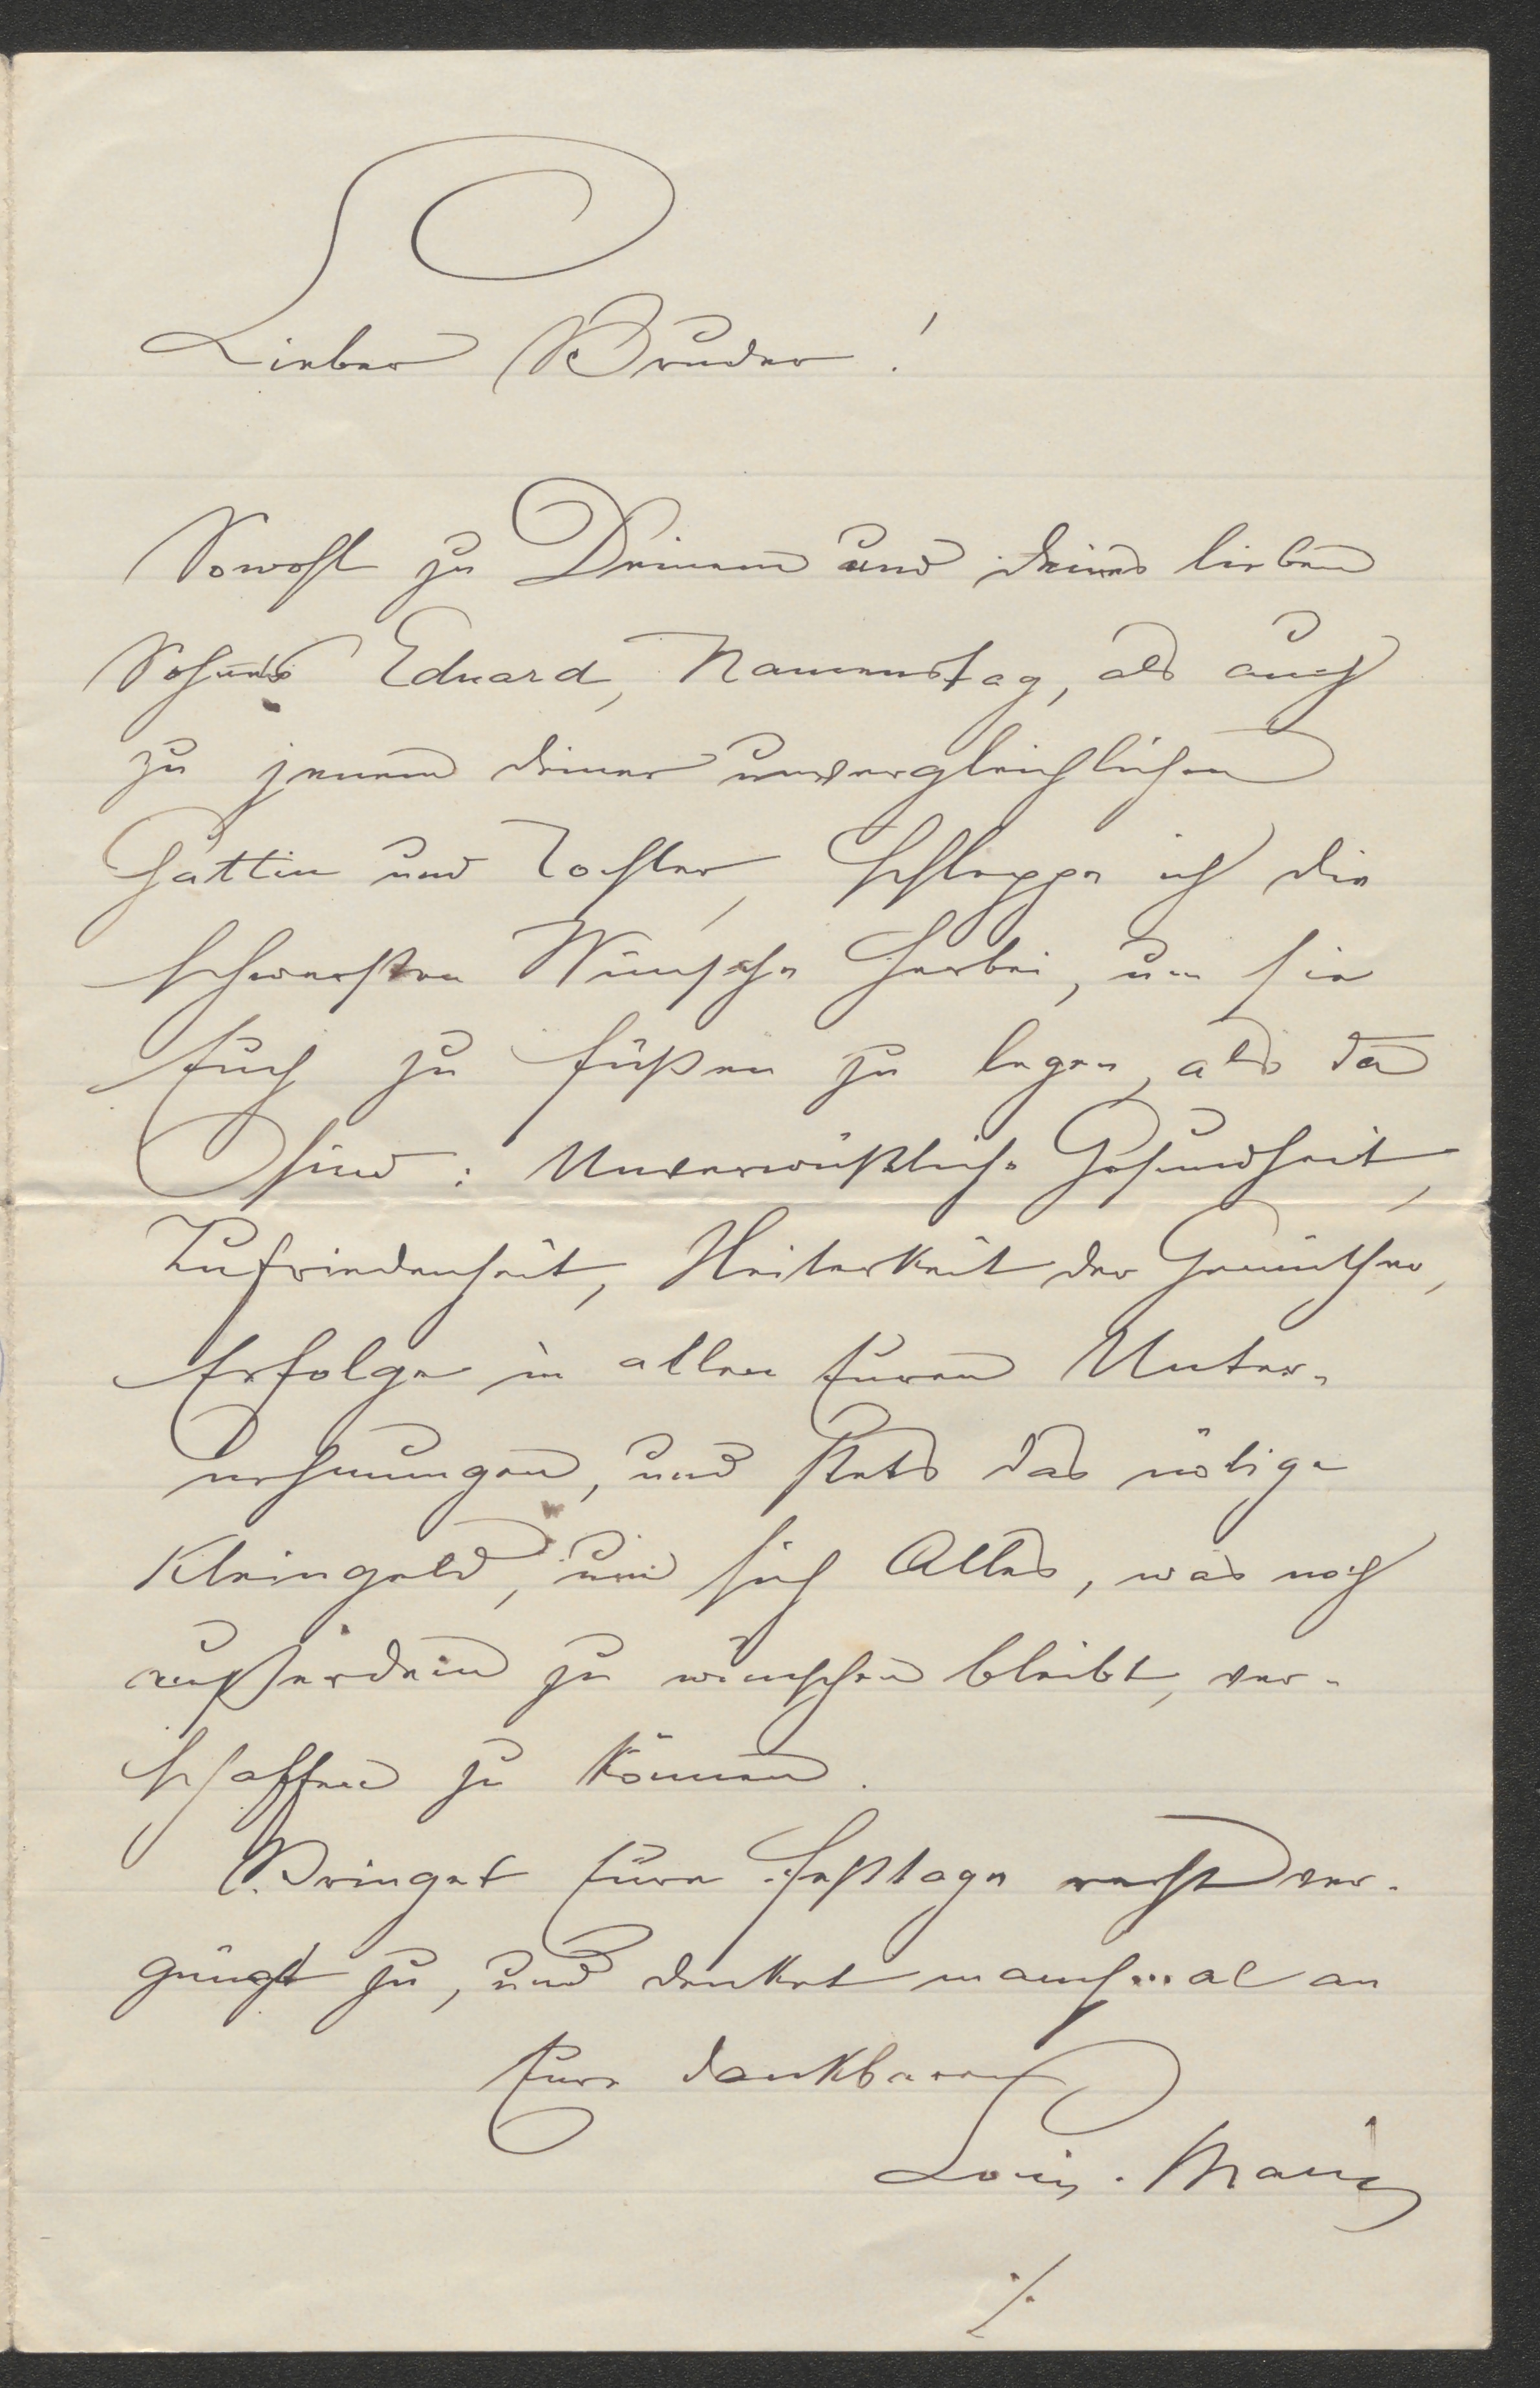 Lieber Bruder!
Sowohl zu Deinem und deines lieben
Sohnes Eduard, Namenstag, als auch
zu jenem deiner unvergleichlichen
Gattin und Tochter, schleppe ich die
schwersten Wünsche herbei, um sie
Euch zu füßen zu legen, als da
sind: Unverwüstliche Gesundheit,
Zufriedenheit, Heiterkeit der Gemüther,
Erfolge in allen Euren Unter-
nehmungen, und stets das nötige
Kleingeld, um sich Alles, was noch
außerdem zu wünschen bleibt, ver-
schaffen zu können.
Bringet Eure Festtage recht ver-
gnügt zu, und denket manchmal an
Eure dankbaren
Louis.
./.